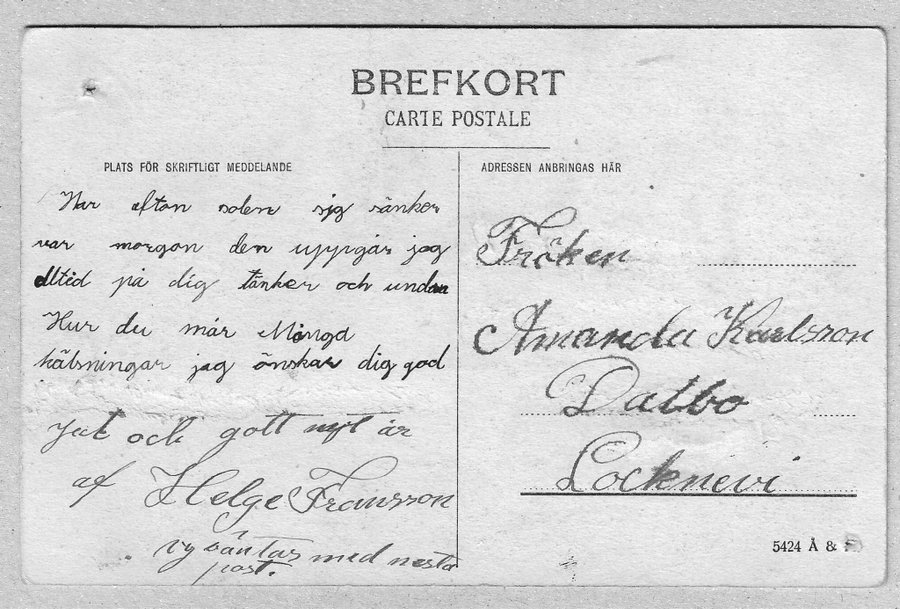 BREFKORT
CARTE POSTALE
PLATS FÖR SKRIFTLIGT MEDDELANDE
ADRESSEN ANBRINGAS HÄR
Har afton solen sig sänker
var morgon den uppgår jag
alltid på dig tänker och undrar
Hur du mår Mångd
hälsningar jag önskar dig god
Jul och gott nyt år
af Helge Fransson
vy väntas med nesta
post.
Fröken
Amanda Karlsson
Dalbo
Locknevi
5424 Å &